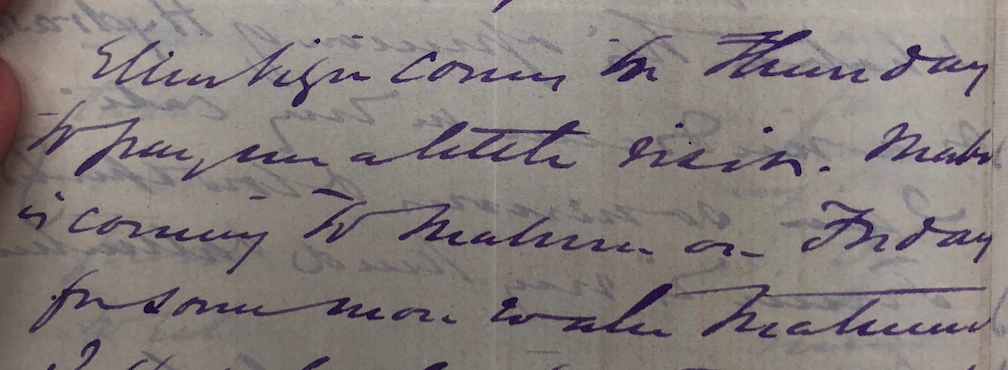 coming on Thursday
to pay me a little visit. Mabel
is coming to Malvern on Friday
for some more water treatment